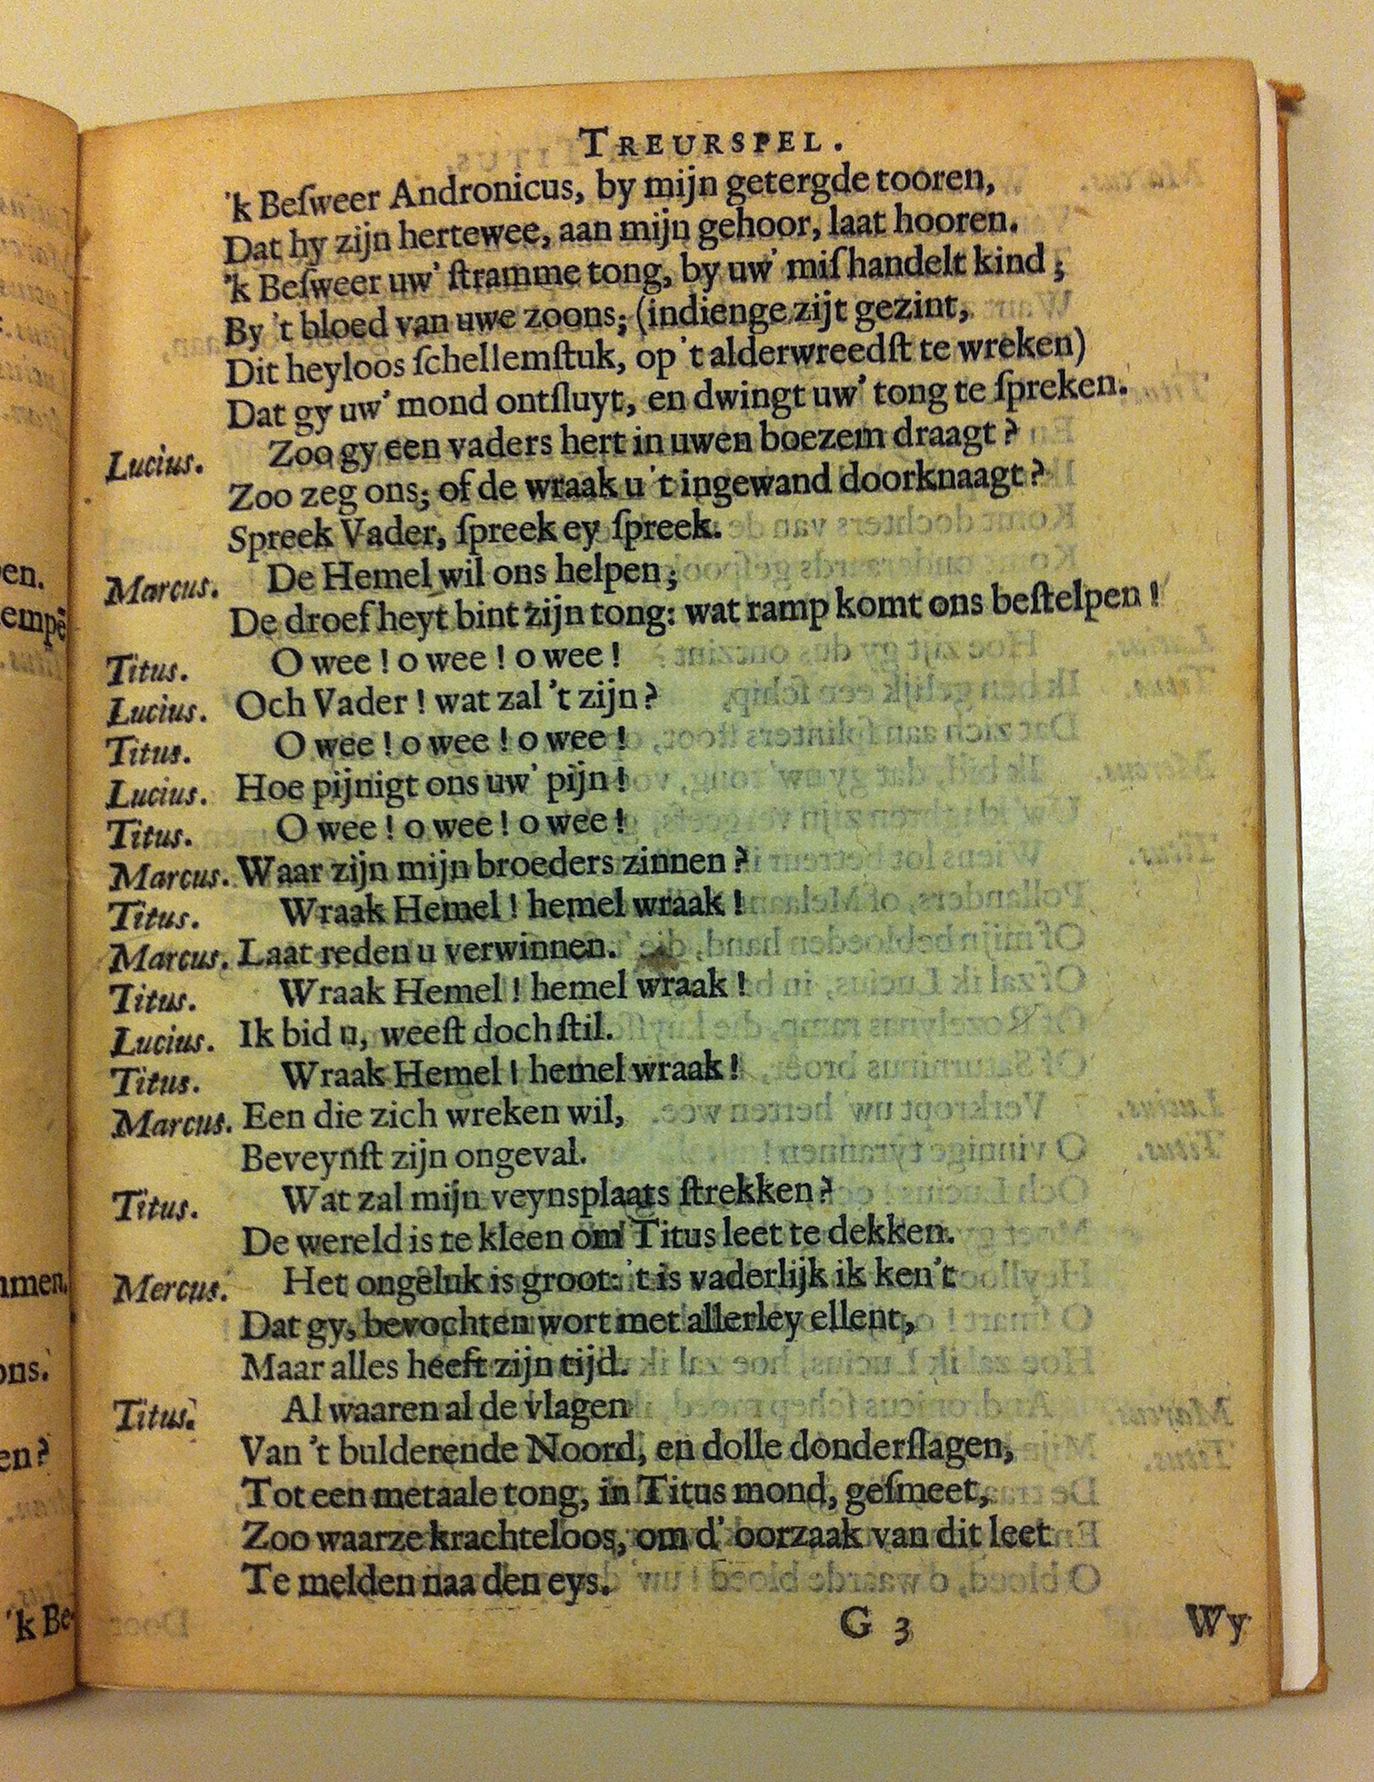 en.
empẽ
men.
ons.
en?
'k Be-
TREURSPEL.
'k Beſweer Andronicus, by mijn getergde tooren,
Dat hy zijn hertewee, aan mijn gehoor, laat hooren.
'k Beſweer uw' ſtramme tong, by uw' miſhandelt kind;
By 't bloed van uwe zoons; (indienge zijt gezint,
Dit heyloos ſchellemſtuk, op 't alderwreedſt te wreken)
Dat gy uw' mond ontſluyt, en dwingt uw' tong te ſpreken.
Lucius. Zoo gy een vaders hert in uwen boezem draagt?
Zoo zeg ons; of de wraak u 't ingewand doorknaagt?
Spreek Vader, ſpreek ey ſpreek.
Marcus. De Hemel wil ons helpen;
De droefheyt bint zijn tong: wat ramp komt ons beſtelpen!
Titus. O wee! o wee! o wee!
Lucius. Och Vader! wat zal 't zijn?
Titus. O wee! o wee! o wee!
Lucius. Hoe pijnigt ons uw' pijn!
Titus. O wee! o wee! o wee!
Marcus. Waar zijn mijn broeders zinnen?
Titus. Wraak Hemel! hemel wraak!
Marcus. Laat reden u verwinnen.
Titus. Wraak Hemel! hemel wraak!
Lucius. Ik bid u, weeſt doch ſtil.
Titus. Wraak Hemel! hemel wraak!
Marcus. Een die zich wreken wil,
Beveynſt zijn ongeval.
Titus. Wat zal mijn veynsplaats ſtrekken?
De wereld is te kleen om Titus leet te dekken.
Mercus. Het ongeluk is groot: 't is vaderlijk ik ken't
Dat gy, bevochten wort met allerley ellent,
Maar alles heeft zijn tijd.
Titus. Al waaren al de vlagen
Van 't bulderende Noord, en dolle donderſlagen,
Tot een metaale tong, in Titus mond, geſmeet,
Zoo waarze krachteloos, om d' oorzaak van dit leet
Te melden naa den eys.
G 3 Wy